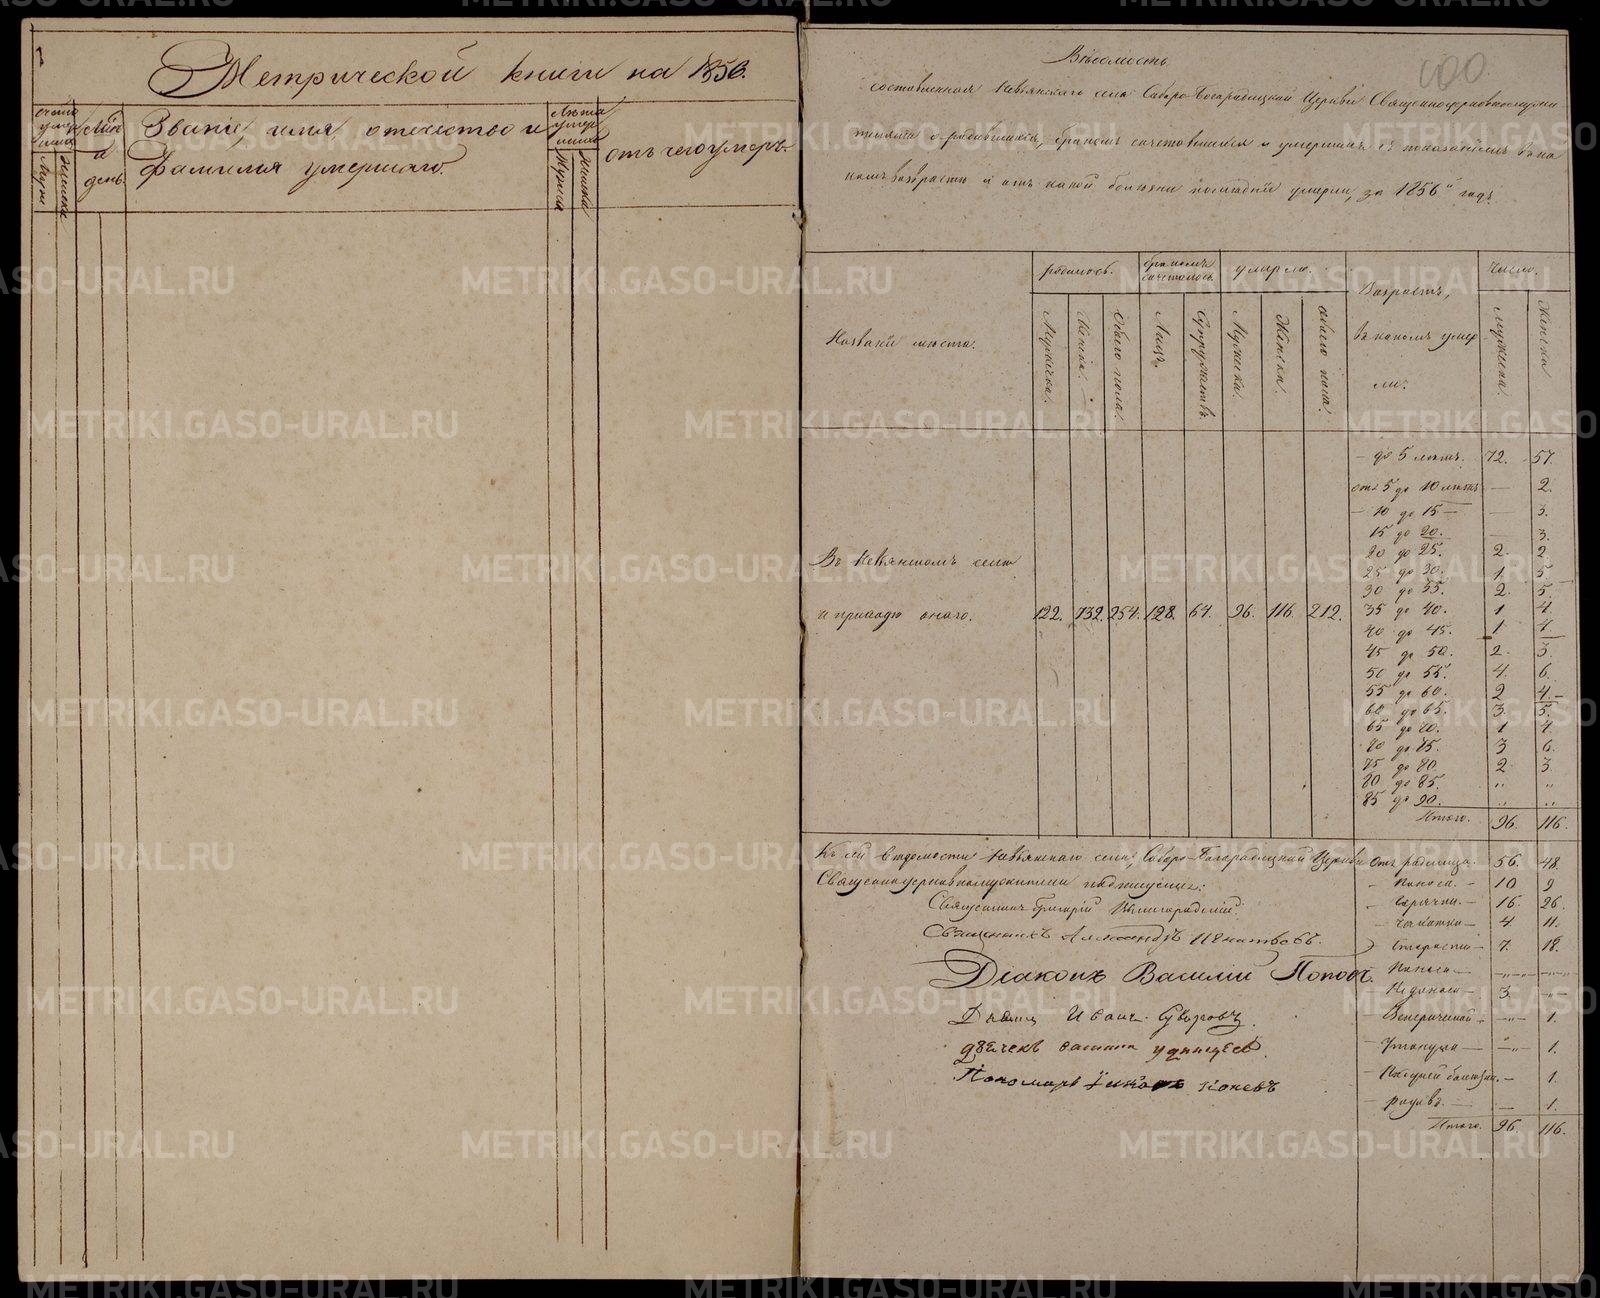 Метрической книги на 1856.
Счетъ умер шихъ
Мужска
Женска
Мѣс.
и
день.
Званіе, имя отечество и
фамилія умершаго.
Лѣта умер шаго
Мужска
Женска
отъ чего умеръ.
100
Вѣдомость
составленная Невьянскаго села Соборо Богородицкой Церкви Священноцерковнослужи
телями о родившихся, бракомъ сочетавшихся и умершихъ съ показаніемъ въ ка
комъ возрастѣ и отъ какой болѣзни послѣдніе умерли, за 1856 годъ.
Названіе мѣста.
родилось.
Мужеска.
Женска.
Обоего пола.
бракомъ сочеталось.
Лицъ.
Супружествъ.
умерло.
Мужеска.
Женска.
Обоего пола.
Возрастъ,
въ какомъ умер
ли.
Число.
Мужеска.
Женска.
до 5 лѣтъ. 72. 57.
отъ 5 до 10 лѣтъ — 2.
— 10 до 15 — — 3.
15 до 20. — 3.
20 до 25. 2. 2.
25 до 30. 1. 5.
30 до 35. 2. 5.
35 до 40. 1 4.
40 до 45. 1 4.
45 до 50. 2. 3.
50 до 55. 4. 6.
55 до 60. 2 4.
60 до 65. 3. 5.
65 до 70. 1 4.
70 до 75. 3 6.
75 до 80. 2. 3.
80 до 85. „ „
85 до 90. „ „
Итого. 96. 116.
Въ Невьянскомъ селѣ
и приходѣ онаго. 122. 132. 254. 128. 64. 96. 116. 212.
Къ сей вѣдомости Невьянскаго села, Соборо-Богородицкой Церкви
Священноцерковнослужители подписуемся:
Священникъ Григорій
Священникъ Александръ Игнатьевъ.
Діаконъ Василій Поповъ.
Дьячекъ Иванъ Суворовъ.
дьячекъ Удинцевъ.
Пономарь Коневъ
Отъ родимца. 56. 48.
— Поноса. — 10 9
— Горячки. — 16. 26.
— Чахотки — 4. 11.
Старости — 7. 18.
— — — —
— 3. „
— Венерической — „ 1.
— — „ 1.
— болѣзни. — 1.
— родовъ. — 1.
Итого. 96. 116.
METRIKI.GASO-URAL.RU